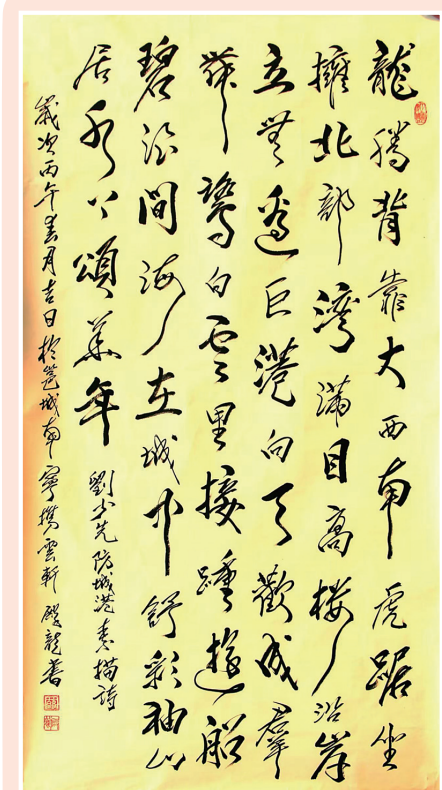 龍騰背靠大西南虎踞坐
擁北部灣滿目高樓沿岸
立無邊巨港向天歡成群
舞鷺白雲里接踵遊船
碧浪間海在城中舒彩袖山
居水上頌華年 劉少先防城港素描詩
歲次丙午春月吉日於邕城南寧雲軒龍書